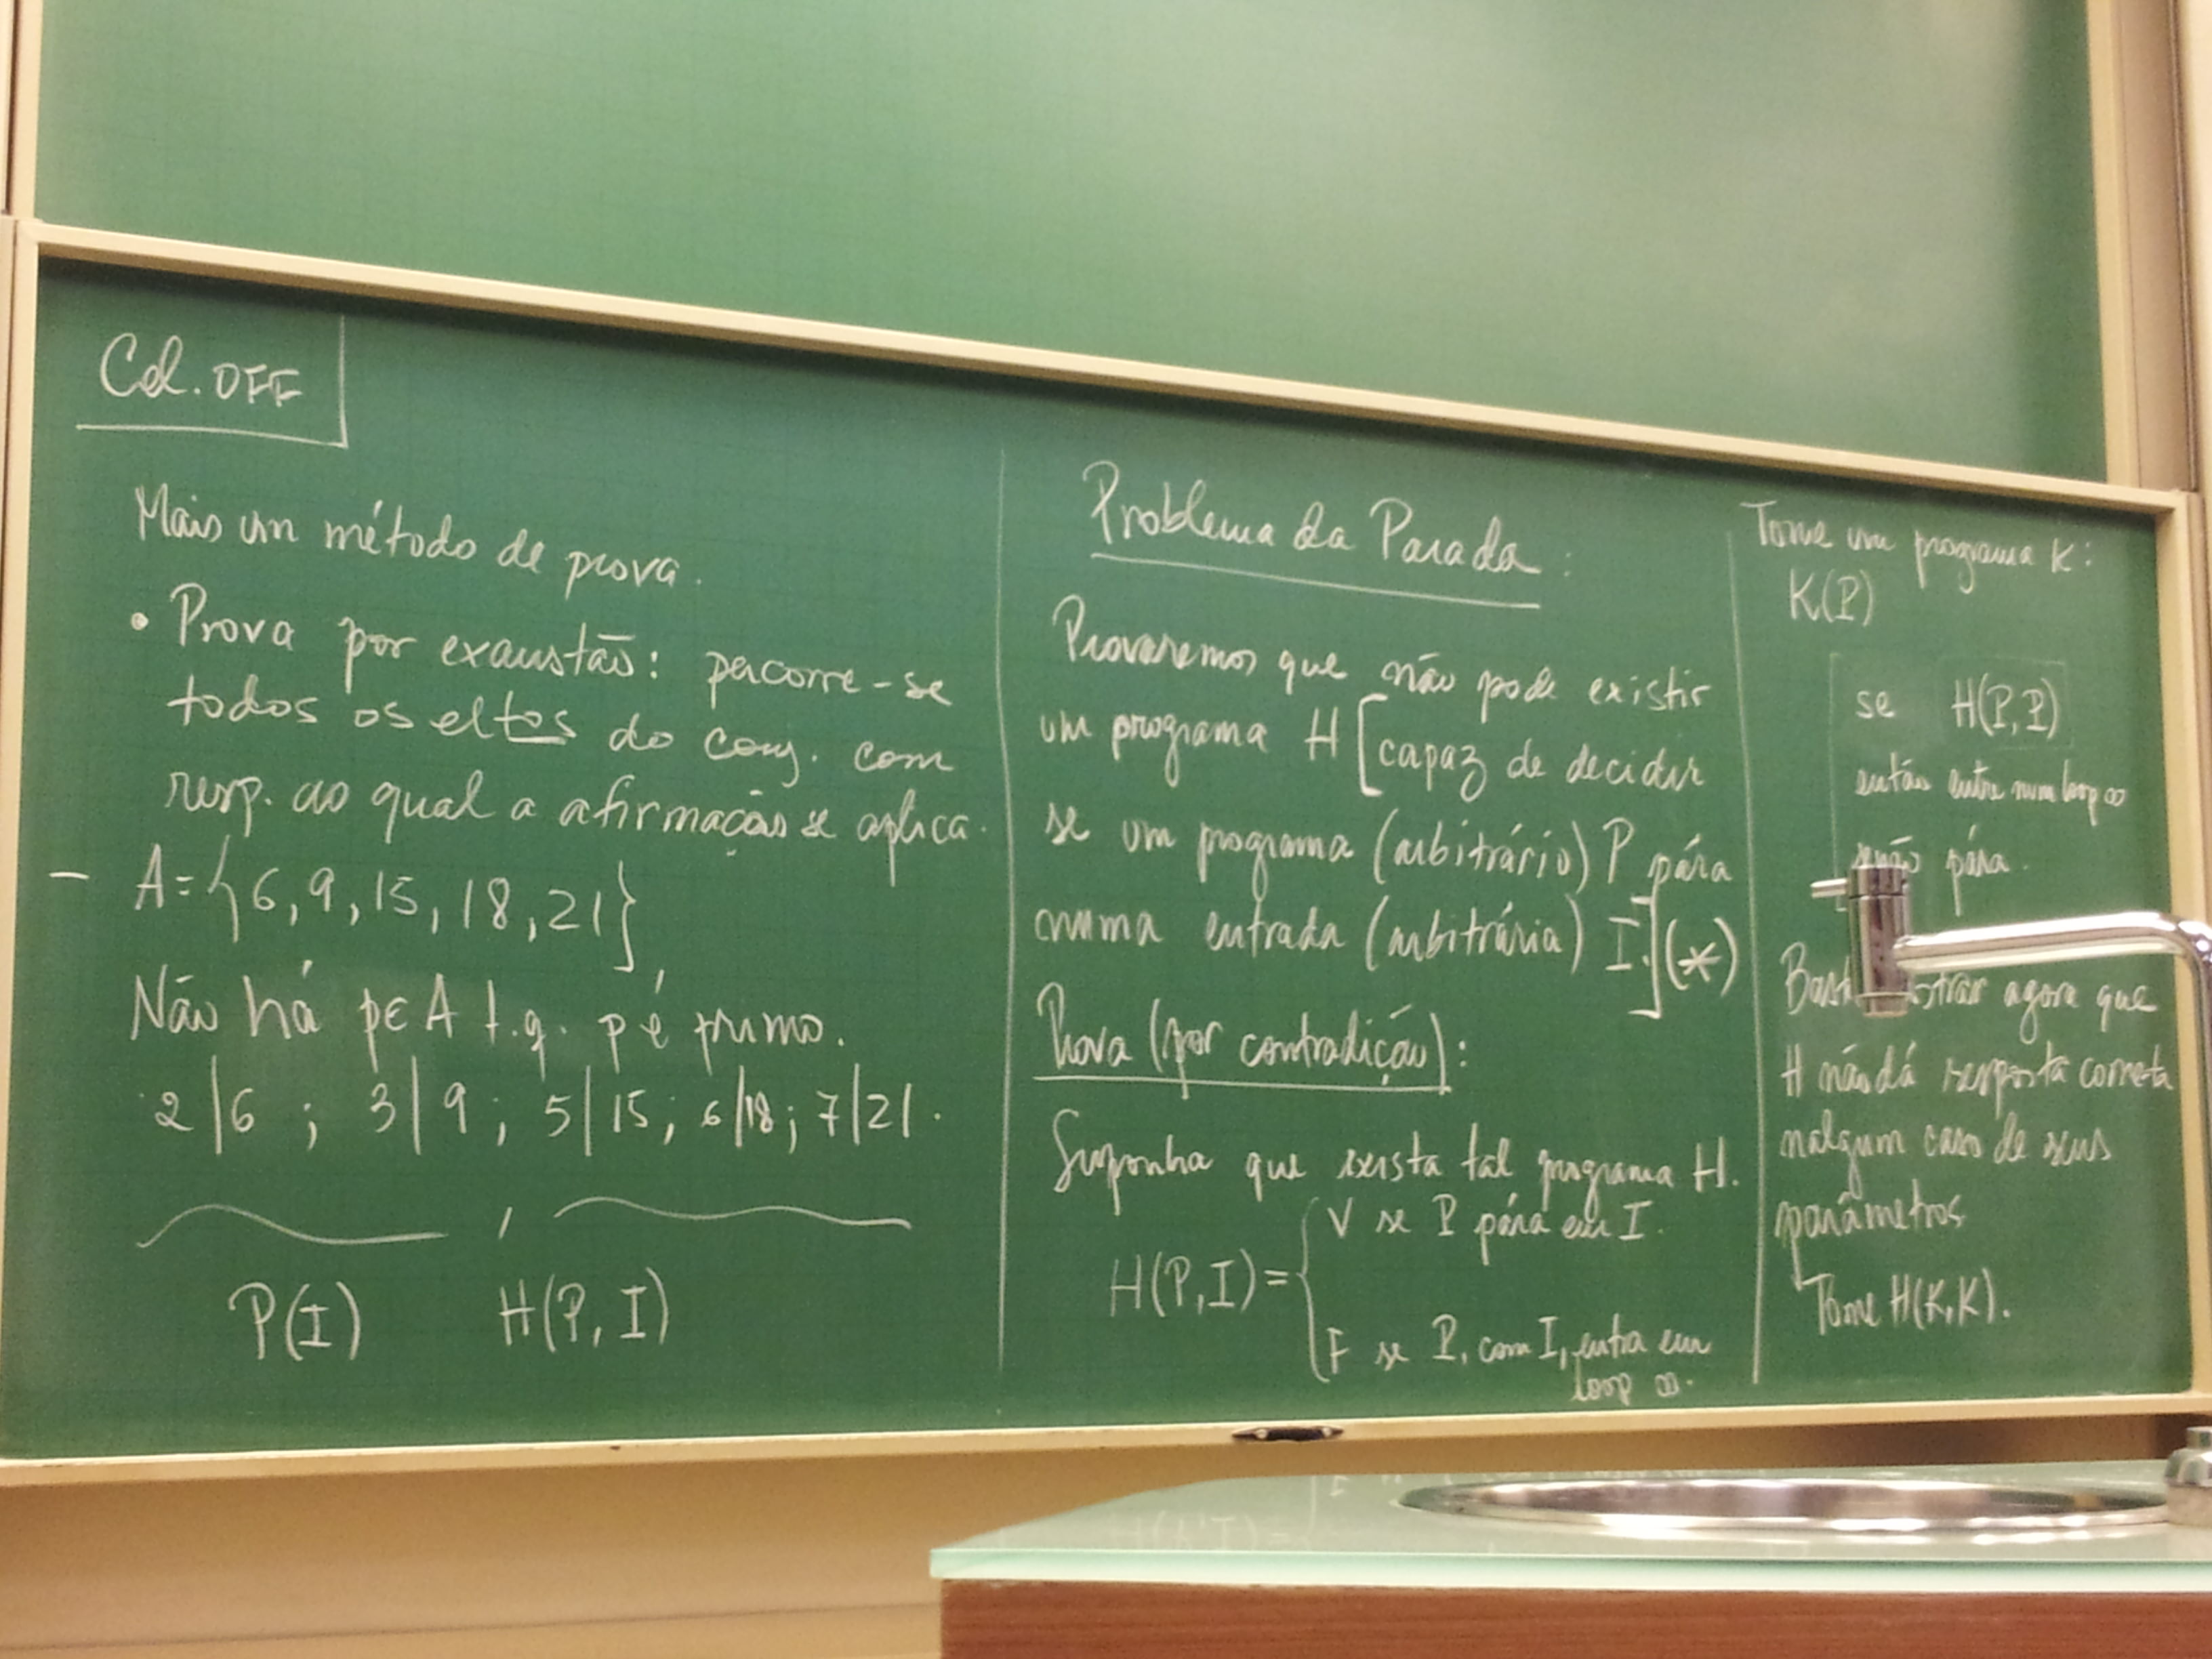 Cel. OFF
Mais um método de prova.
• Prova por exaustão: percorre-se
todos os eltos do conj. com
resp. ao qual a afirmação se aplica.
– A = {6, 9, 15, 18, 21}
Não há p ∈ A t.q. p é primo.
2|6 ; 3|9 ; 5|15 ; 6|18 ; 7|21.
P(I) H(P, I)
Problema da Parada:
Provaremos que não pode existir
um programa H [capaz de decidir
se um programa (arbitrário) P pára
numa entrada (arbitrária) I.] (*)
Prova (por contradição):
Suponha que exista tal programa H.
V se P pára em I.
H(P, I) =
F se P, com I, entra em
loop ∞.
Tome um programa K:
K(P)
se H(P, P)
então entre num loop ∞
pára.
agora que
H não dá resposta correta
nalgum caso de seus
parâmetros
Tome H(K, K).